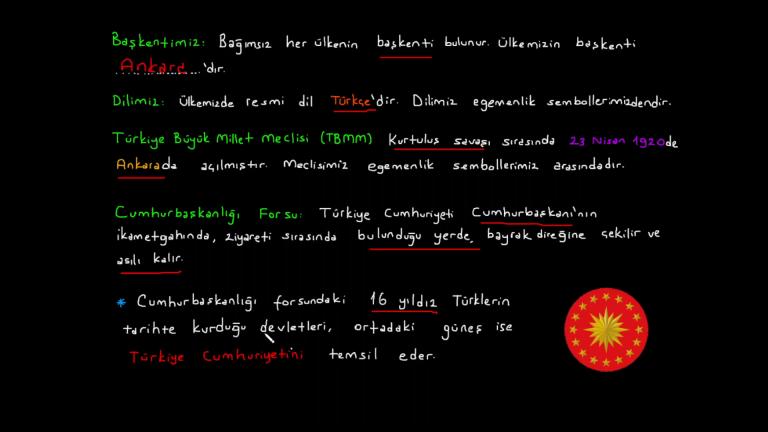 Başkentimiz: Bağımsız her ülkenin başkenti bulunur. Ülkemizin başkenti
Ankara'dır.
Dilimiz: Ülkemizde resmi dil Türkçe'dir. Dilimiz egemenlik sembollerimizdendir.
Türkiye Büyük Millet Meclisi (TBMM) Kurtuluş savaşı sırasında 23 Nisan 1920de
Ankarada açılmıştır. Meclisimiz egemenlik sembollerimiz arasındadır.
Cumhurbaşkanlığı Forsu: Türkiye Cumhuriyeti Cumhurbaşkanı'nın
ikametgahında, ziyareti sırasında bulunduğu yerde, bayrak direğine çekilir ve
asılı kalır.
* Cumhurbaşkanlığı forsundaki 16 yıldız Türklerin
tarihte kurduğu devletleri, ortadaki güneş ise
Türkiye Cumhuriyetini temsil eder.